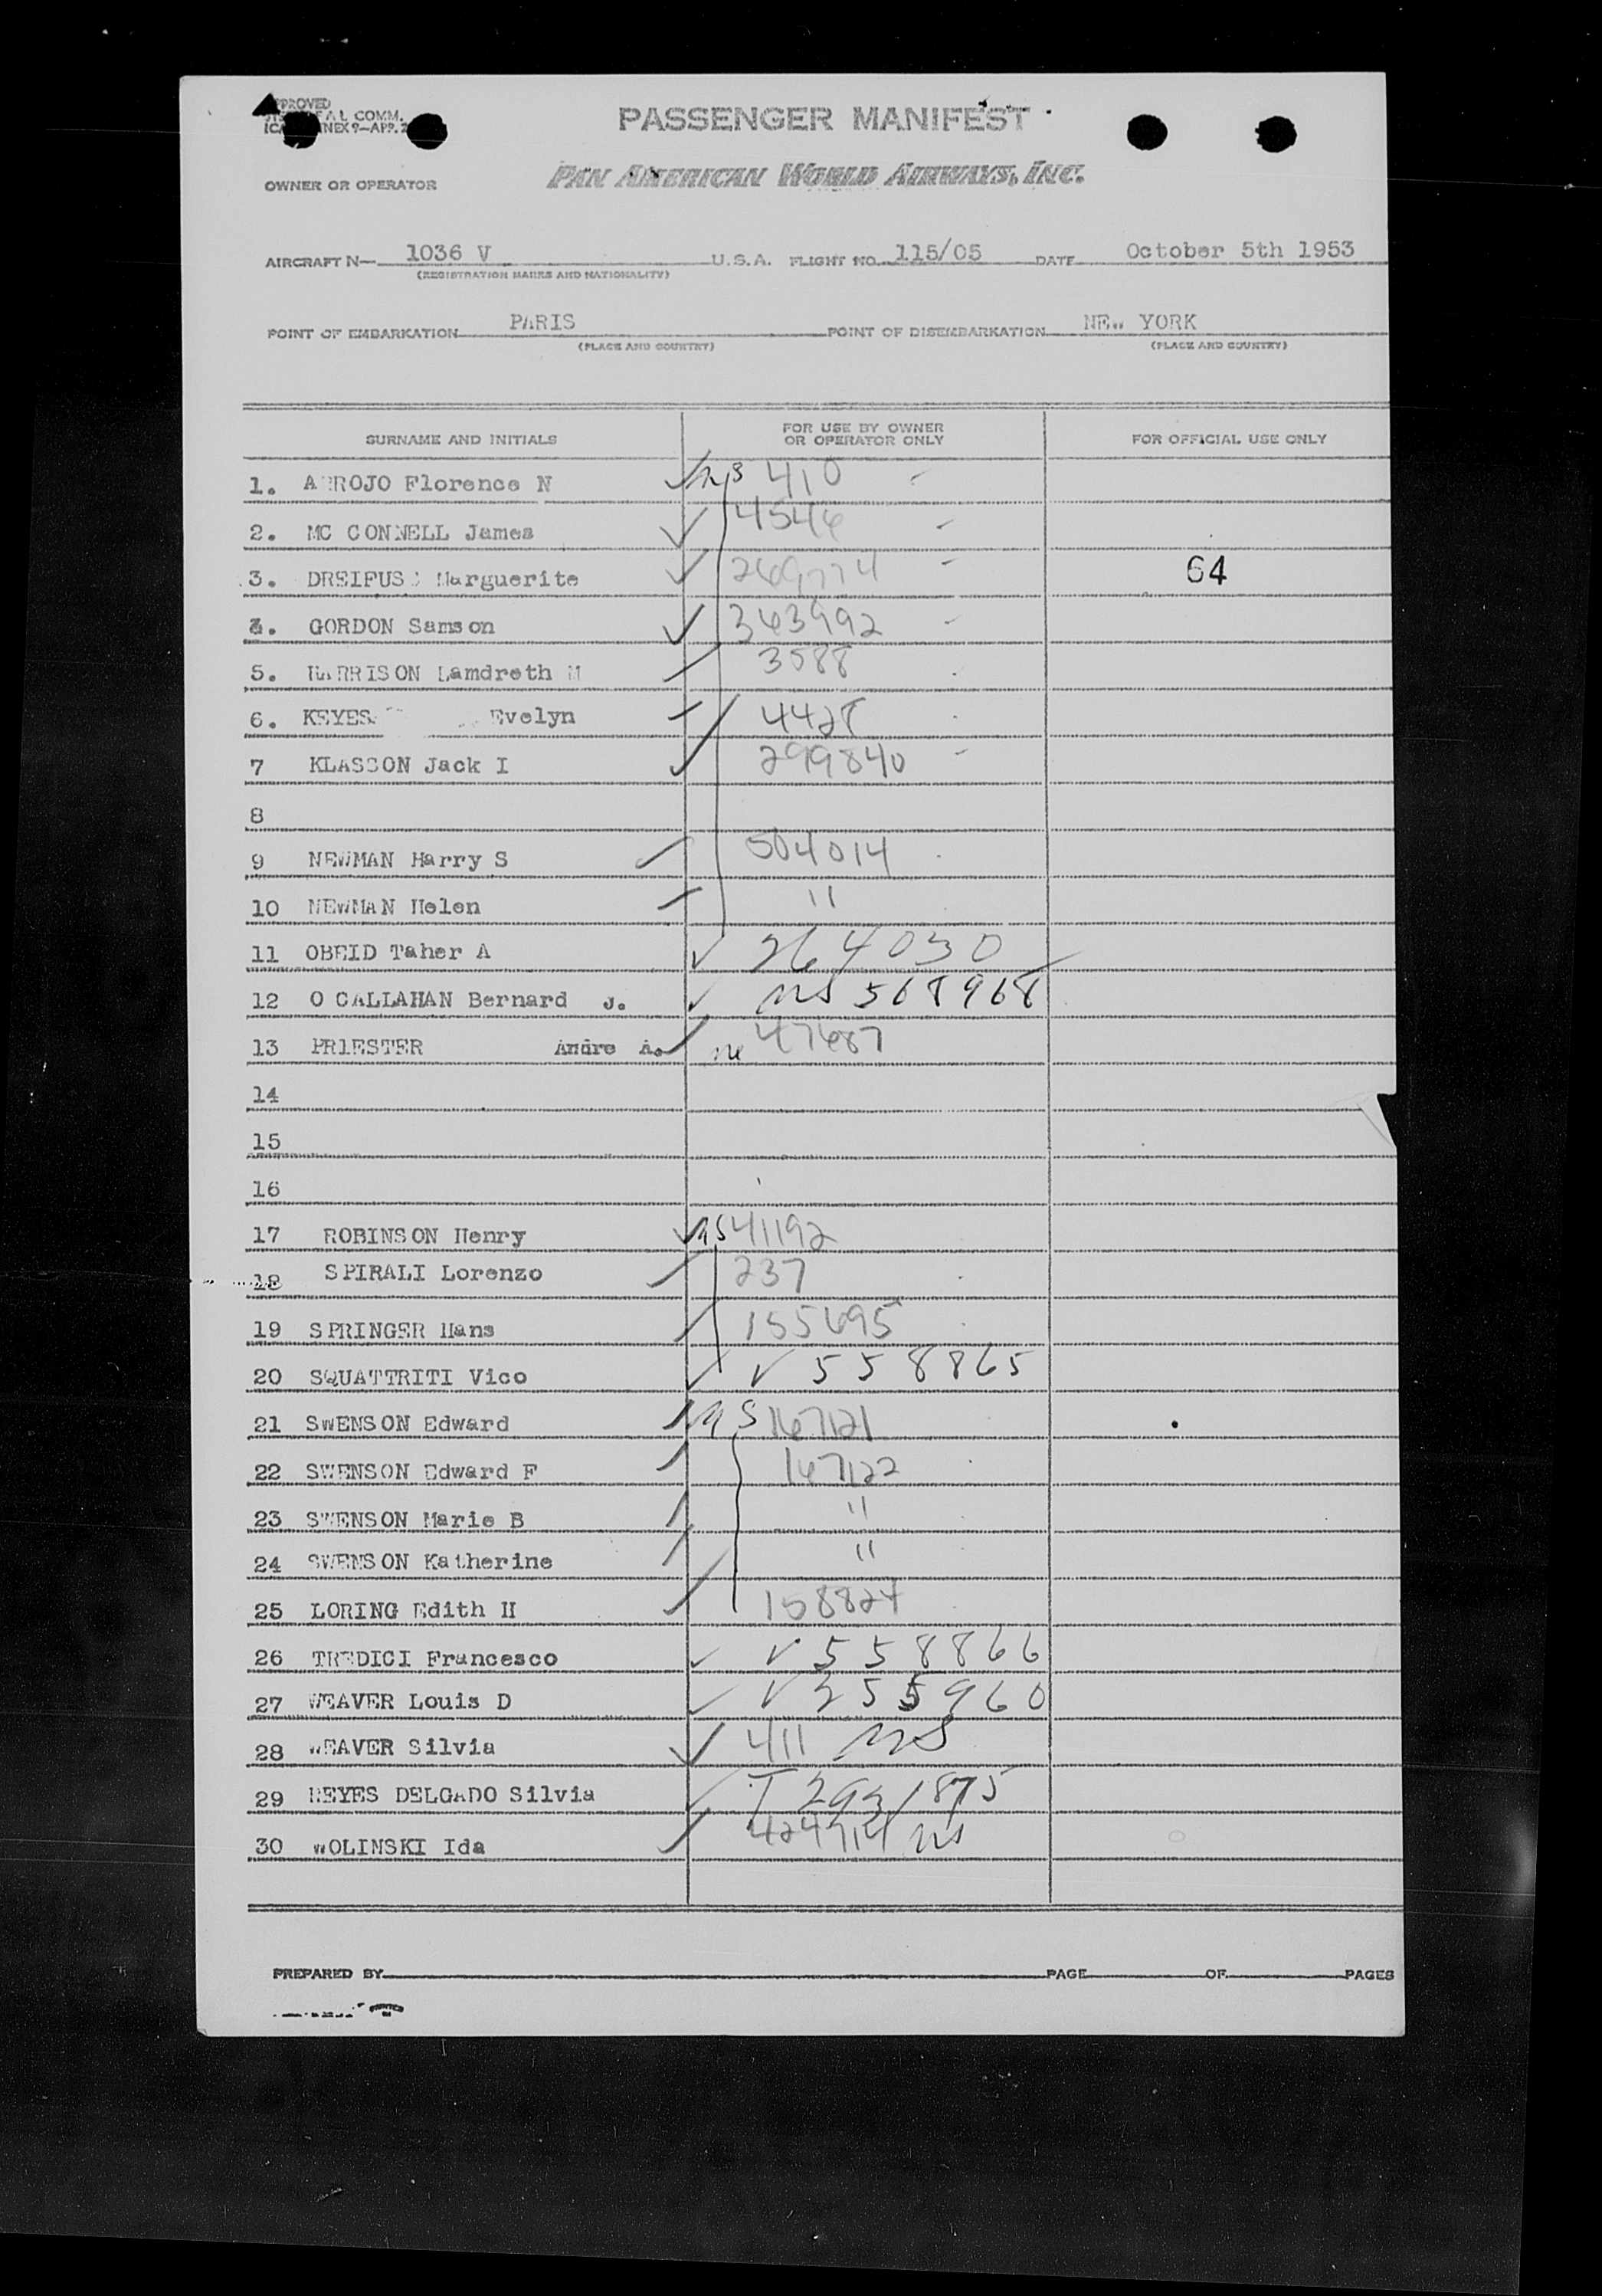 PASSENGER MANIFEST
OWNER OR OPERATOR PAN AMERICAN WORLD AIRWAYS, INC.
AIRCRAFT N— 1036 V U.S.A. FLIGHT NO. 115/05 DATE October 5th 1953
(REGISTRATION MARKS AND NATIONALITY)
POINT OF EMBARKATION PARIS POINT OF DISEMBARKATION NEW YORK
(PLACE AND COUNTRY) (PLACE AND COUNTRY)
SURNAME AND INITIALS FOR USE BY OWNER OR OPERATOR ONLY FOR OFFICIAL USE ONLY
1. ARROJO Florence N 410
2. MC CONNELL James 4546
3. DREIFUSS Marguerite 269774 64
4. GORDON Samson 363992
5. HARRISON Lamdreth M 3588
6. KEYES Evelyn 4428
7 KLASSON Jack I 299840
8
9 NEWMAN Harry S 504014
10 NEWMAN Helen "
11 OBEID Taher A 264030
12 O CALLAHAN Bernard J. ns 568968
13 PRIESTER Andre A. 47687
14
15
16
17 ROBINSON Henry ns 41192
18 SPIRALI Lorenzo 237
19 SPRINGER Hans 155695
20 SQUATTRITI Vico V 558865
21 SWENSON Edward ns 167121
22 SWENSON Edward F 167122
23 SWENSON Marie B "
24 SWENSON Katherine "
25 LORING Edith H 158824
26 TREDICI Francesco V 558866
27 WEAVER Louis D V 255960
28 WEAVER Silvia 411 ns
29 REYES DELGADO Silvia T 2931875
30 WOLINSKI Ida 424714 ns
PREPARED BY PAGE OF PAGES